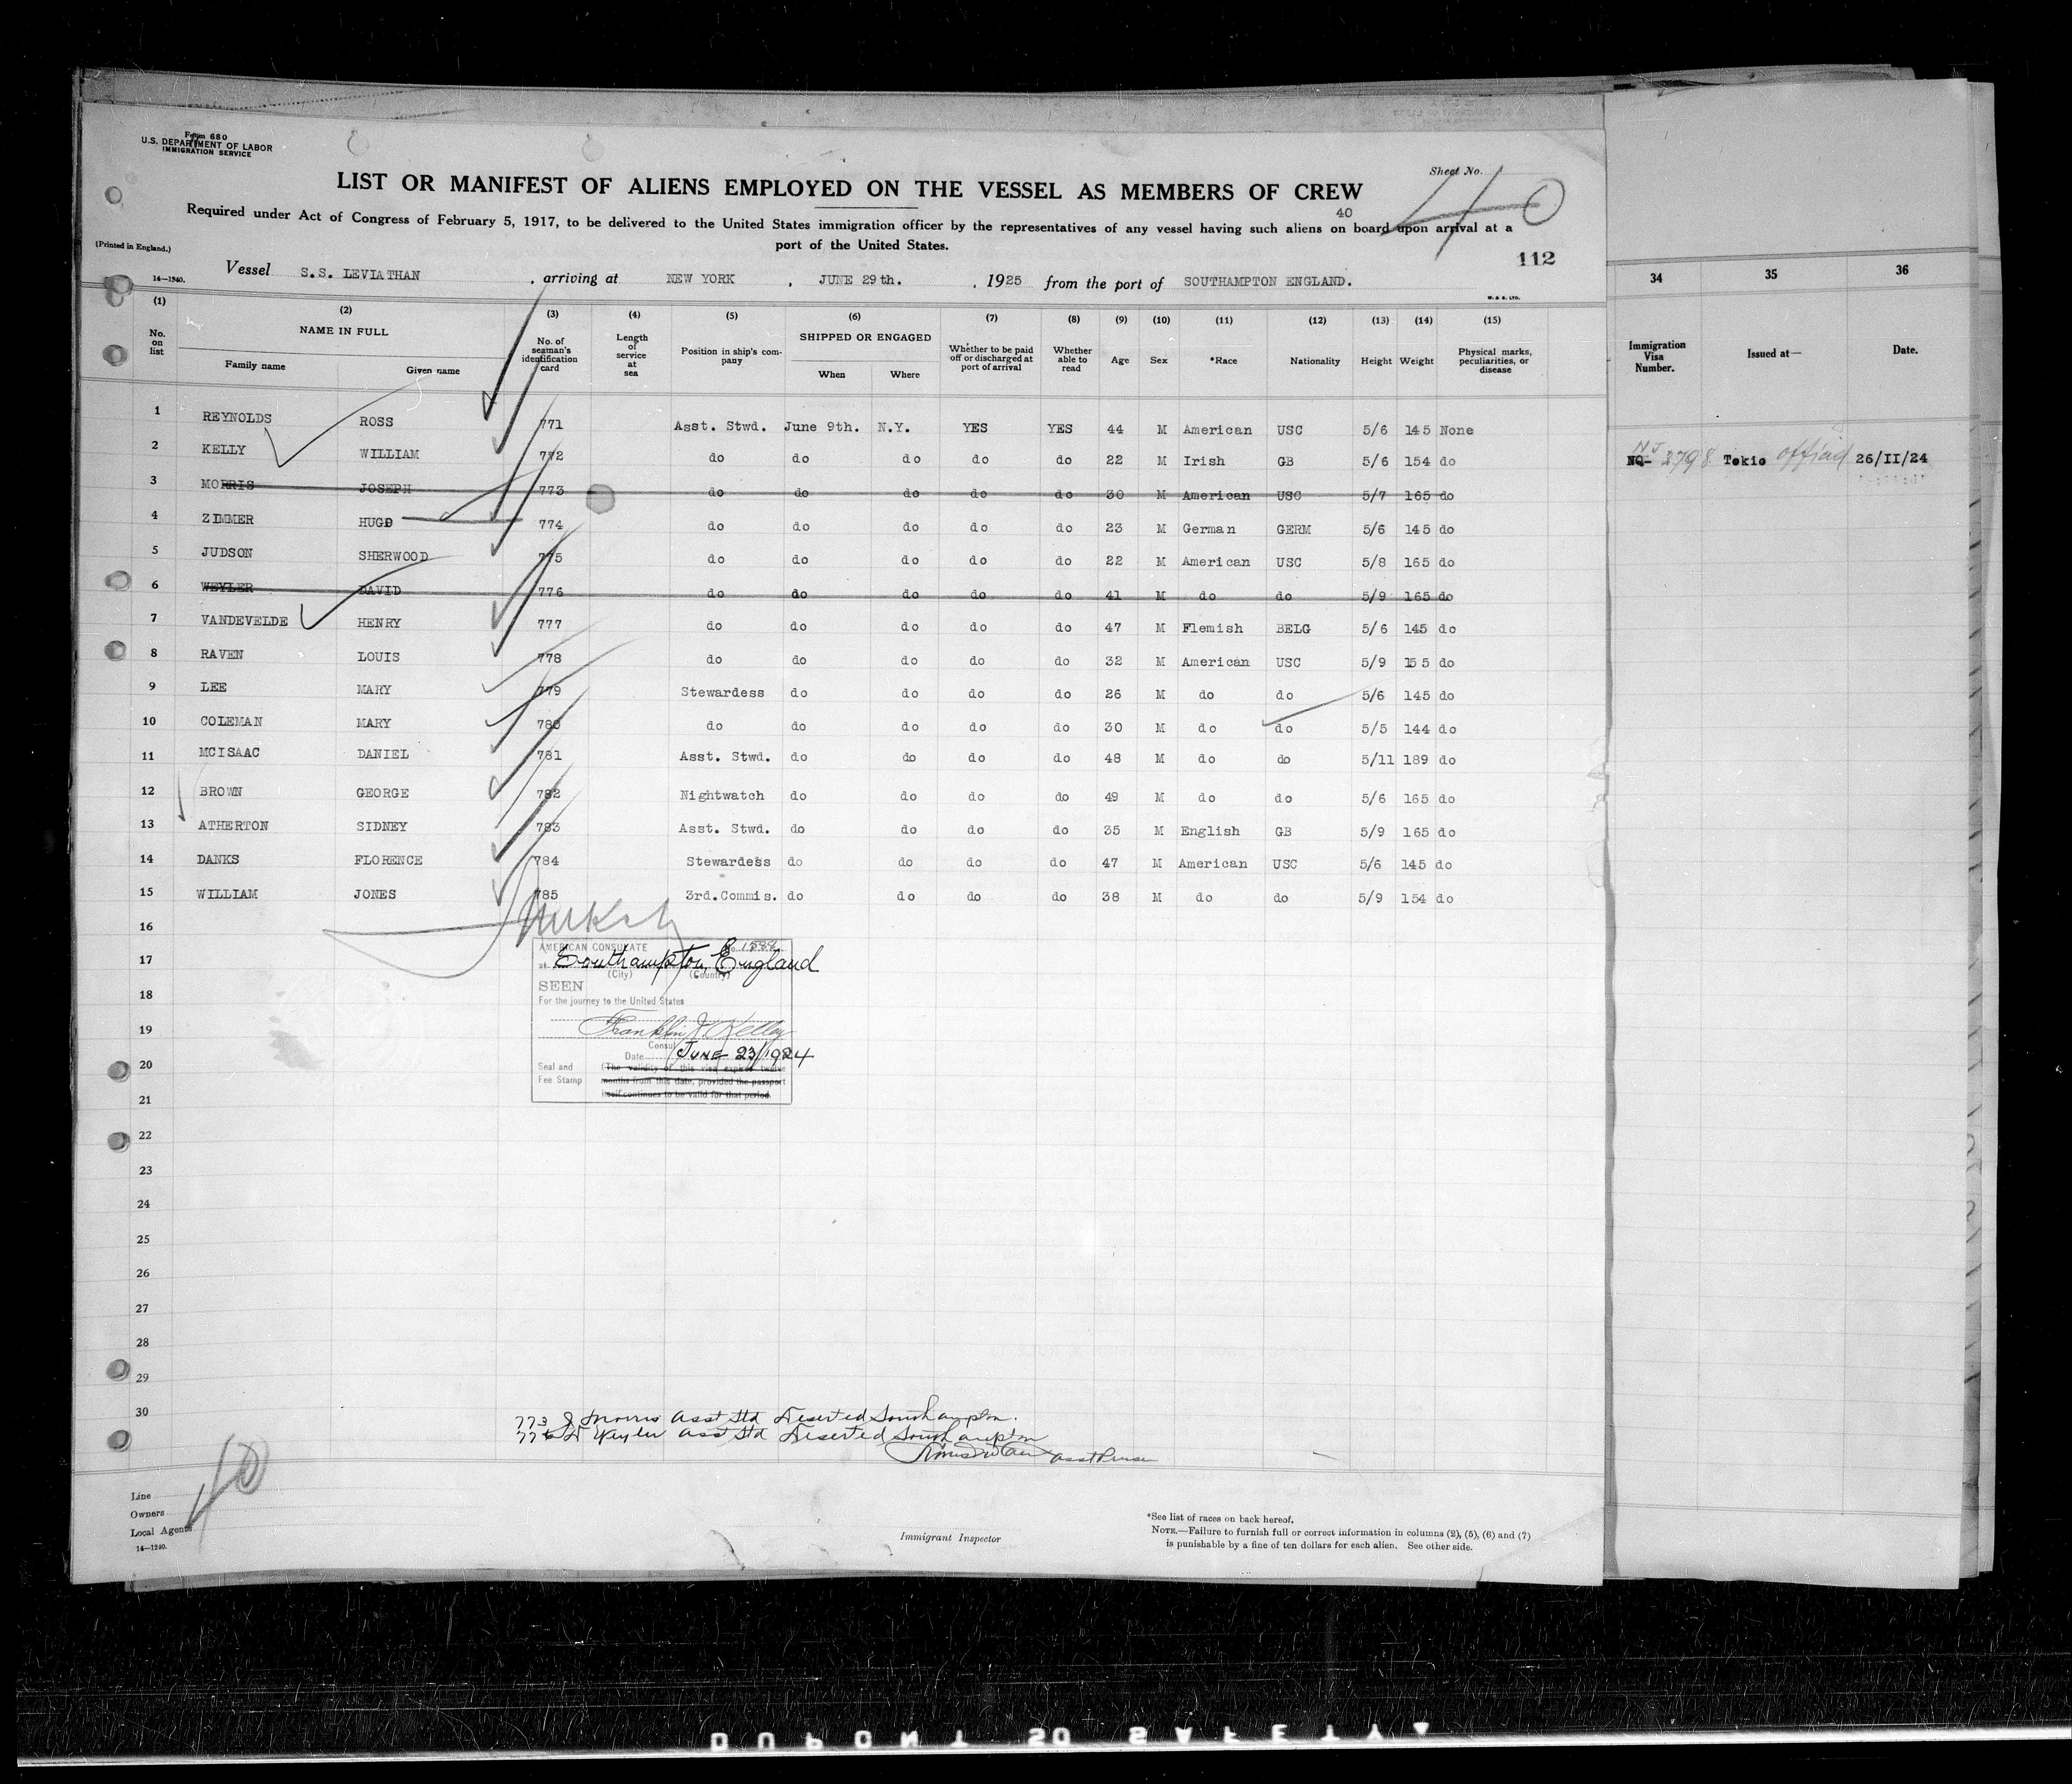 Form 680
U.S. DEPARTMENT OF LABOR
IMMIGRATION SERVICE
Sheet No. 40
LIST OR MANIFEST OF ALIENS EMPLOYED ON THE VESSEL AS MEMBERS OF CREW
40
Required under Act of Congress of February 5, 1917, to be delivered to the United States immigration officer by the representatives of any vessel having such aliens on board upon arrival at a
port of the United States.
(Printed in England.)
112
14—1240.
Vessel S.S. LEVIATHAN , arriving at NEW YORK , JUNE 29th. , 1925 from the port of SOUTHAMPTON ENGLAND.
W. & S. LTD.
(1) (2) (3) (4) (5) (6) (7) (8) (9) (10) (11) (12) (13) (14) (15) 34 35 36
No. on list NAME IN FULL Family name Given name No. of seaman's identification card Length of service at sea Position in ship's company SHIPPED OR ENGAGED When Where Whether to be paid off or discharged at port of arrival Whether able to read Age Sex *Race Nationality Height Weight Physical marks, peculiarities, or disease Immigration Visa Number. Issued at— Date.
1 REYNOLDS ROSS 771 Asst. Stwd. June 9th. N.Y. YES YES 44 M American USC 5/6 145 None
2 KELLY WILLIAM 772 do do do do do 22 M Irish GB 5/6 154 do NQ- 3798 Tokio official 26/II/24
3 MORRIS JOSEPH 773 do do do do do 30 M American USC 5/7 165 do
4 ZIMMER HUGO 774 do do do do do 23 M German GERM 5/6 145 do
5 JUDSON SHERWOOD 775 do do do do do 22 M American USC 5/8 165 do
6 WEYLER DAVID 776 do do do do do 41 M do do 5/9 165 do
7 VANDEVELDE HENRY 777 do do do do do 47 M Flemish BELG 5/6 145 do
8 RAVEN LOUIS 778 do do do do do 32 M American USC 5/9 155 do
9 LEE MARY 779 Stewardess do do do do 26 M do do 5/6 145 do
10 COLEMAN MARY 780 do do do do do 30 M do do 5/5 144 do
11 MCISAAC DANIEL 781 Asst. Stwd. do do do do 48 M do do 5/11 189 do
12 BROWN GEORGE 782 Nightwatch do do do do 49 M do do 5/6 165 do
13 ATHERTON SIDNEY 783 Asst. Stwd. do do do do 35 M English GB 5/9 165 do
14 DANKS FLORENCE 784 Stewardess do do do do 47 M American USC 5/6 145 do
15 WILLIAM JONES 785 3rd.Commis. do do do do 38 M do do 5/9 154 do
16
AMERICAN CONSULATE
17 at Southampton, England
(City) (Country)
SEEN
18 For the journey to the United States
19 Franklin J. Kelley
Consul
20 Date June 23/1924
Seal and (The validity of this visa expires twelve
Fee Stamp months from this date, provided the passport
21 itself continues to be valid for that period.
22
23
24
25
26
27
28
29
30
773 J Morris Asst Std Deserted Southampton.
776 D Weyler Asst Std Deserted Southampton
Asst Purser
40
Line
Owners
Local Agents
14—1240.
Immigrant Inspector
*See list of races on back hereof.
NOTE.—Failure to furnish full or correct information in columns (2), (5), (6) and (7)
is punishable by a fine of ten dollars for each alien. See other side.
DUPONT SAFETY